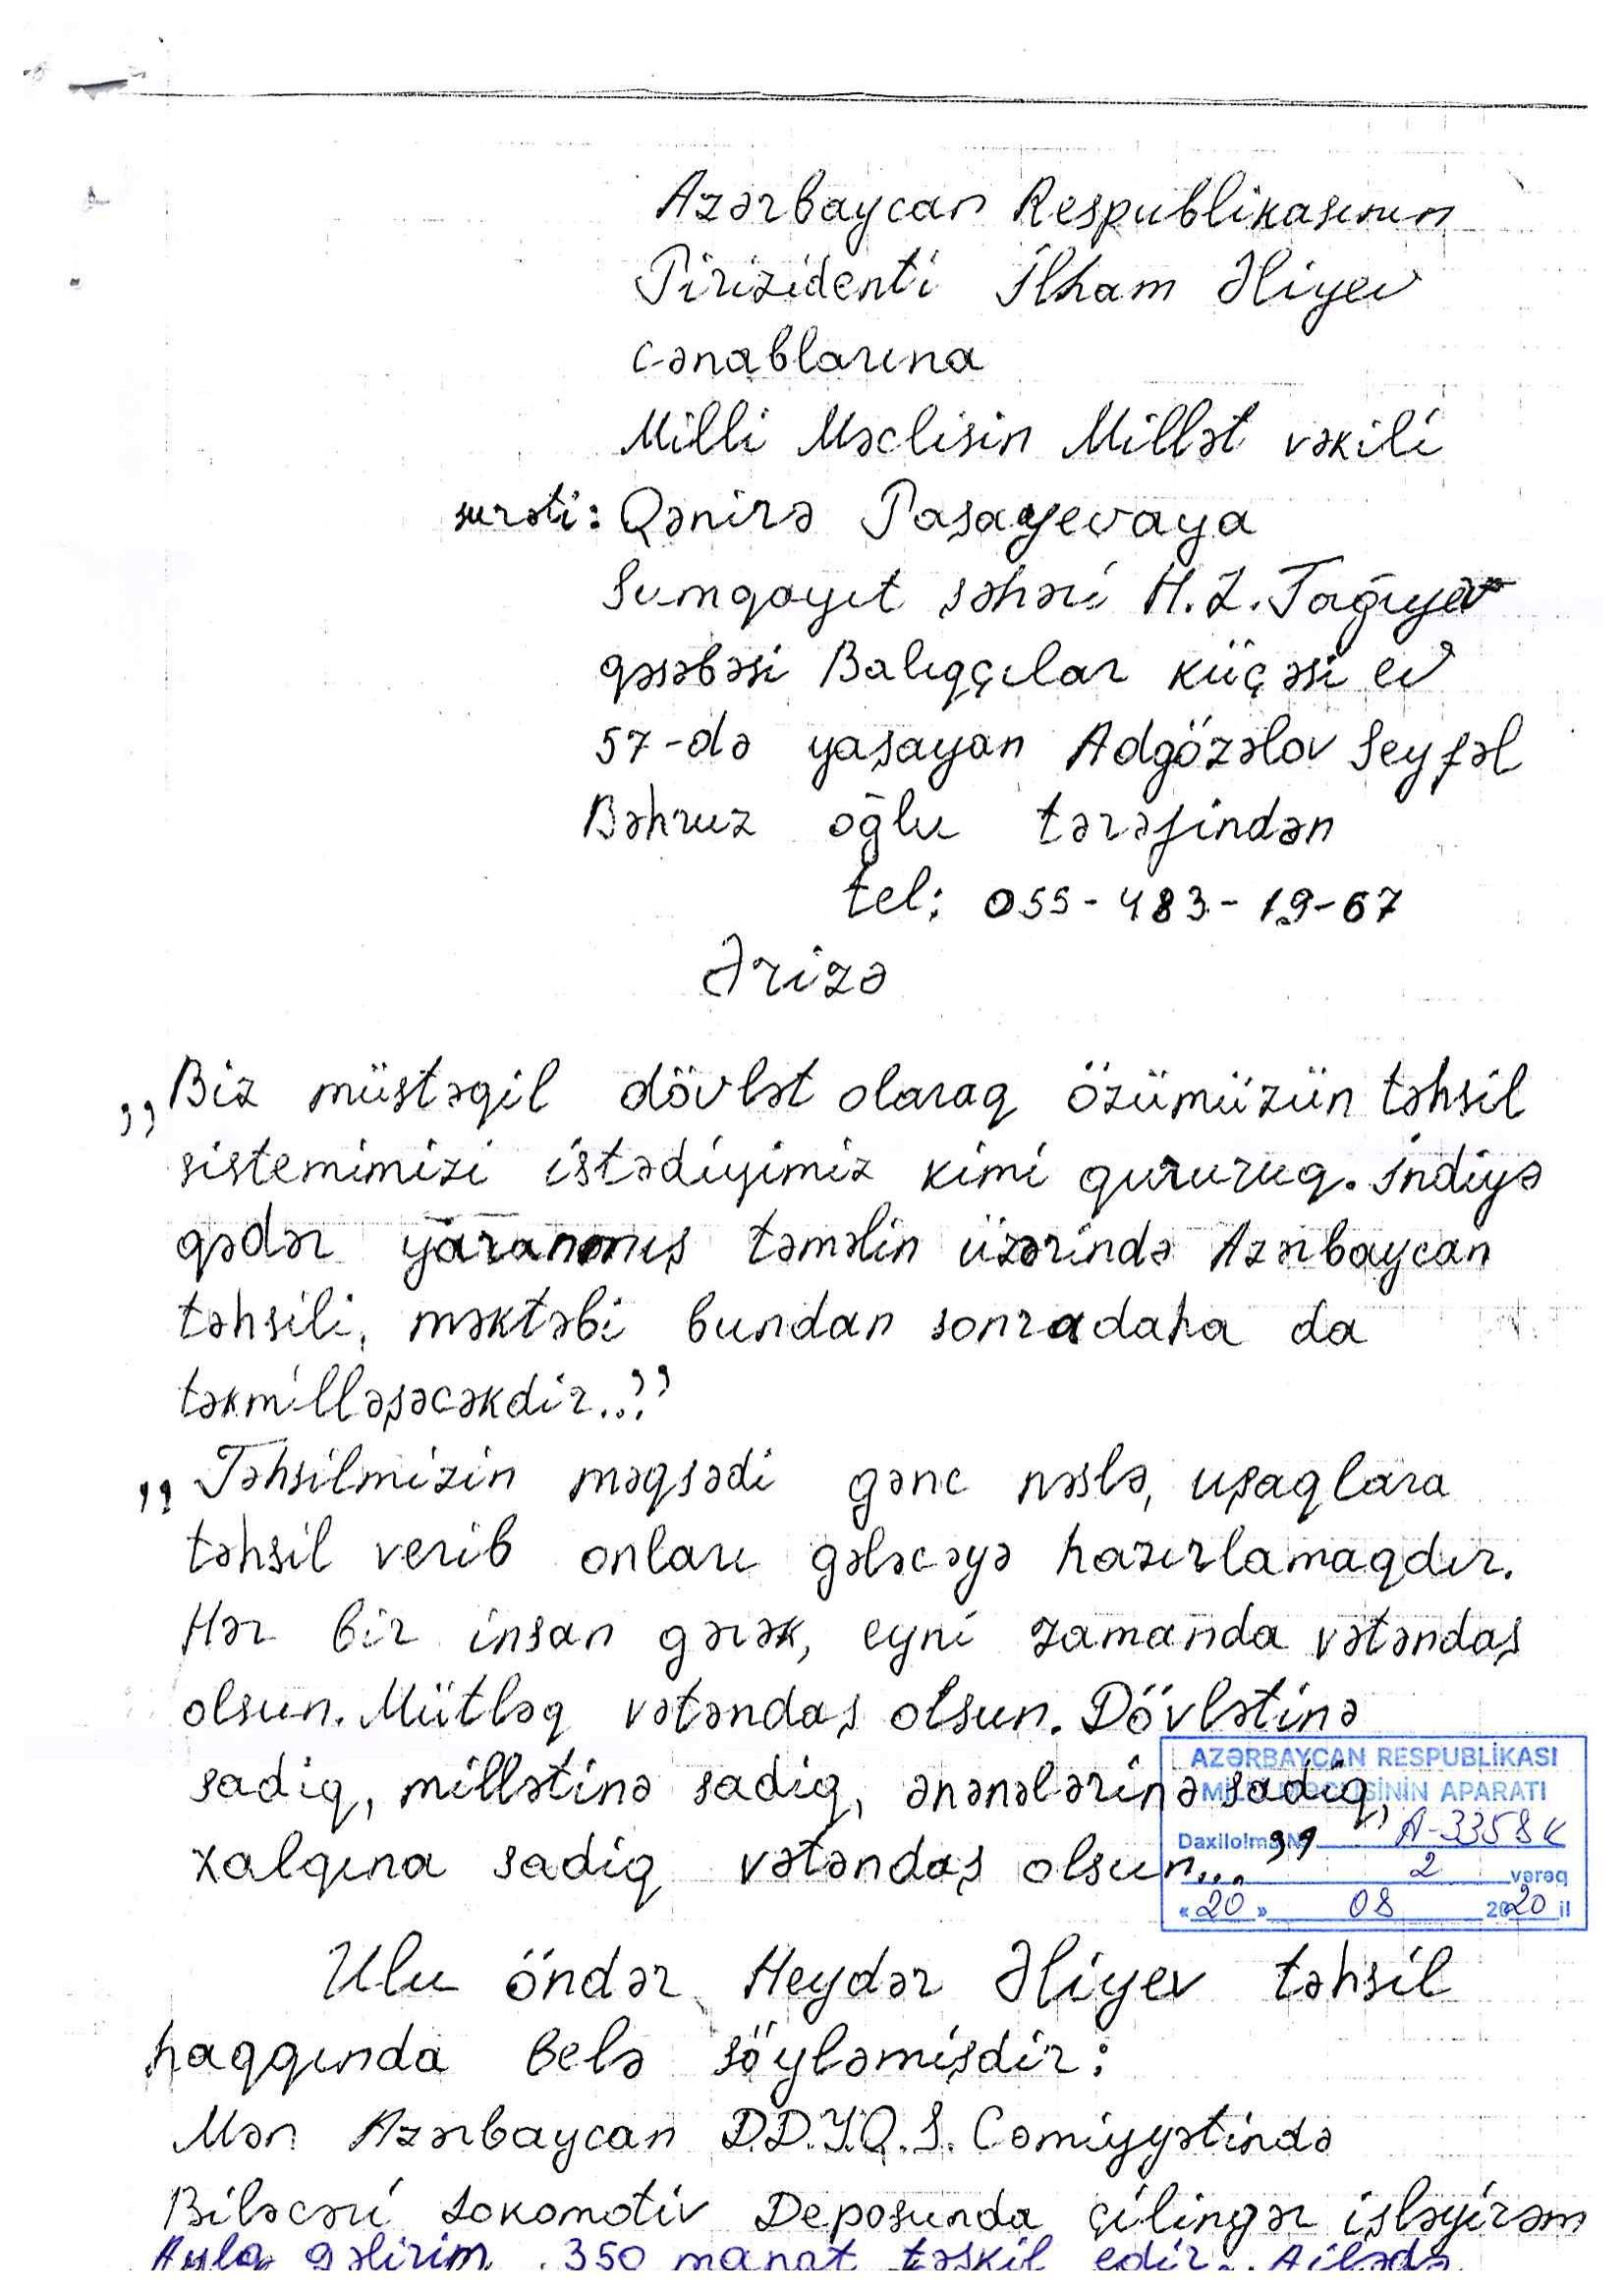 Azərbaycan Respublikasının
Pirizidenti İlham Əliyev
cənablarına
Milli Məclisin Millət vəkili
surəti: Qənirə Paşayevaya
Sumqayıt şəhəri H.Z.Tağıyev
qəsəbəsi Balıqçılar küçəsi ev
57-də yaşayan Adgözəlov Seyfəl
Bəhruz oğlu tərəfindən
tel: 055-483-19-67
Ərizə
,,Biz müstəqil dövlət olaraq özümüzün təhsil
sistemimizi istədiyimiz kimi qururuq. İndiyə
qədər yaranmış təməlin üzərində Azərbaycan
təhsili, məktəbi bundan sonra daha da
təkmilləşəcəkdir...''
,,Təhsilmizin məqsədi gənc nəslə, uşaqlara
təhsil verib onları gələcəyə hazırlamaqdır.
Hər bir insan gərək, eyni zamanda vətəndaş
olsun. Mütləq vətəndaş olsun. Dövlətinə
sadiq, millətinə sadiq, ənənələrinə sadiq,
xalqına sadiq vətəndaş olsun...''
AZƏRBAYCAN RESPUBLİKASI
MİLLİ MƏCLİSİNİN APARATI
Daxilolma № A-3358K
2 vərəq
«20» 08 2020 il
Ulu öndər Heydər Əliyev təhsil
haqqında belə söyləmişdir:
Mən Azərbaycan D.D.Y.Q.S. Cəmiyyətində
Biləcəri Lokomotiv Deposunda çilingər işləyirəm
Aylıq gəlirim 350 manat təşkil edir. Ailədə